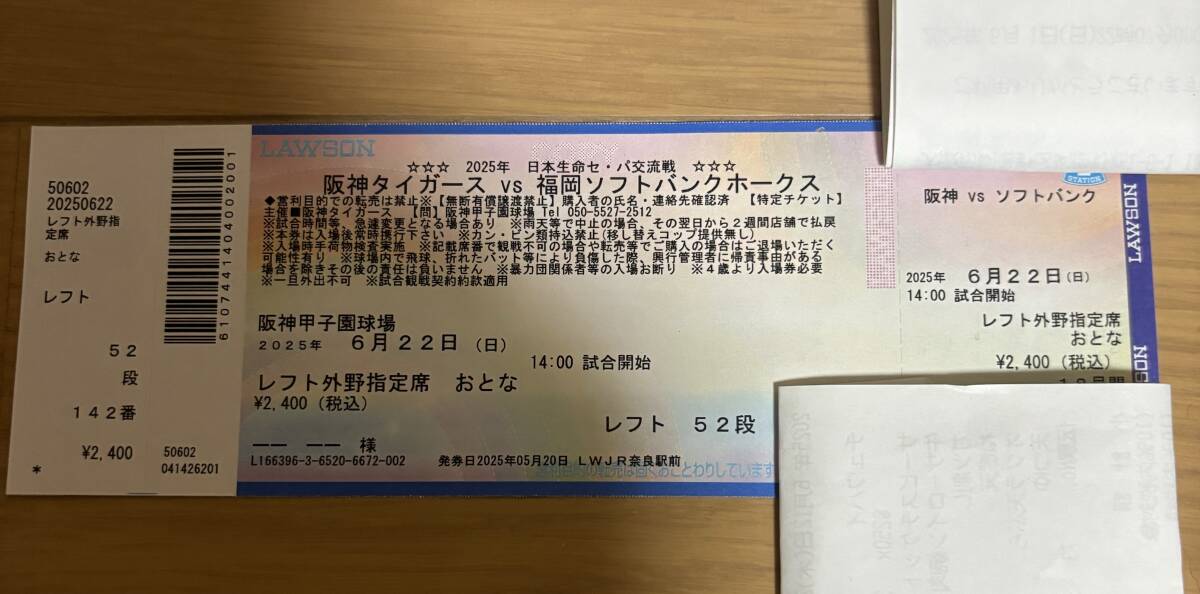 50602
20250622
レフト外野指
定席
おとな
レフト
52
段
142番
¥2,400
*
6107441404002001
50602
041426201
LAWSON
☆☆☆ 2025年 日本生命セ・パ交流戦 ☆☆☆
阪神タイガース vs 福岡ソフトバンクホークス
◆営利目的での転売は禁止※【無断有償譲渡禁止】購入者の氏名・連絡先確認済 【特定チケット】
主催■阪神タイガース 【問】阪神甲子園球場 Tel 050-5527-2512
※試合時間等、急遽変更となる場合あり ※雨天等で中止の場合、その翌日から2週間店舗で払戻
※本券は入場後常時携行下さい ※カン・ビン類持込禁止(移し替えコップ提供無し)
※入場時手荷物検査実施 ※記載席番で観戦不可の場合や転売等でご購入の場合はご退場いただく
可能性有り ※球場内で飛球、折れたバット等により負傷した際、興行管理者に帰責事由がある
場合を除きその後の責任は負いません ※暴力団関係者等の入場お断り ※4歳より入場券必要
※一旦外出不可 ※試合観戦契約約款適用
阪神甲子園球場
2025年 6月22日(日)
14:00 試合開始
レフト外野指定席 おとな
¥2,400(税込)
レフト 52段
―― ―― 様
L166396-3-6520-6672-002 発券日2025年05月20日 LWJR奈良駅前
STATION
阪神 vs ソフトバンク
2025年 6月22日(日)
14:00 試合開始
レフト外野指定席
おとな
¥2,400(税込)
LAWSON